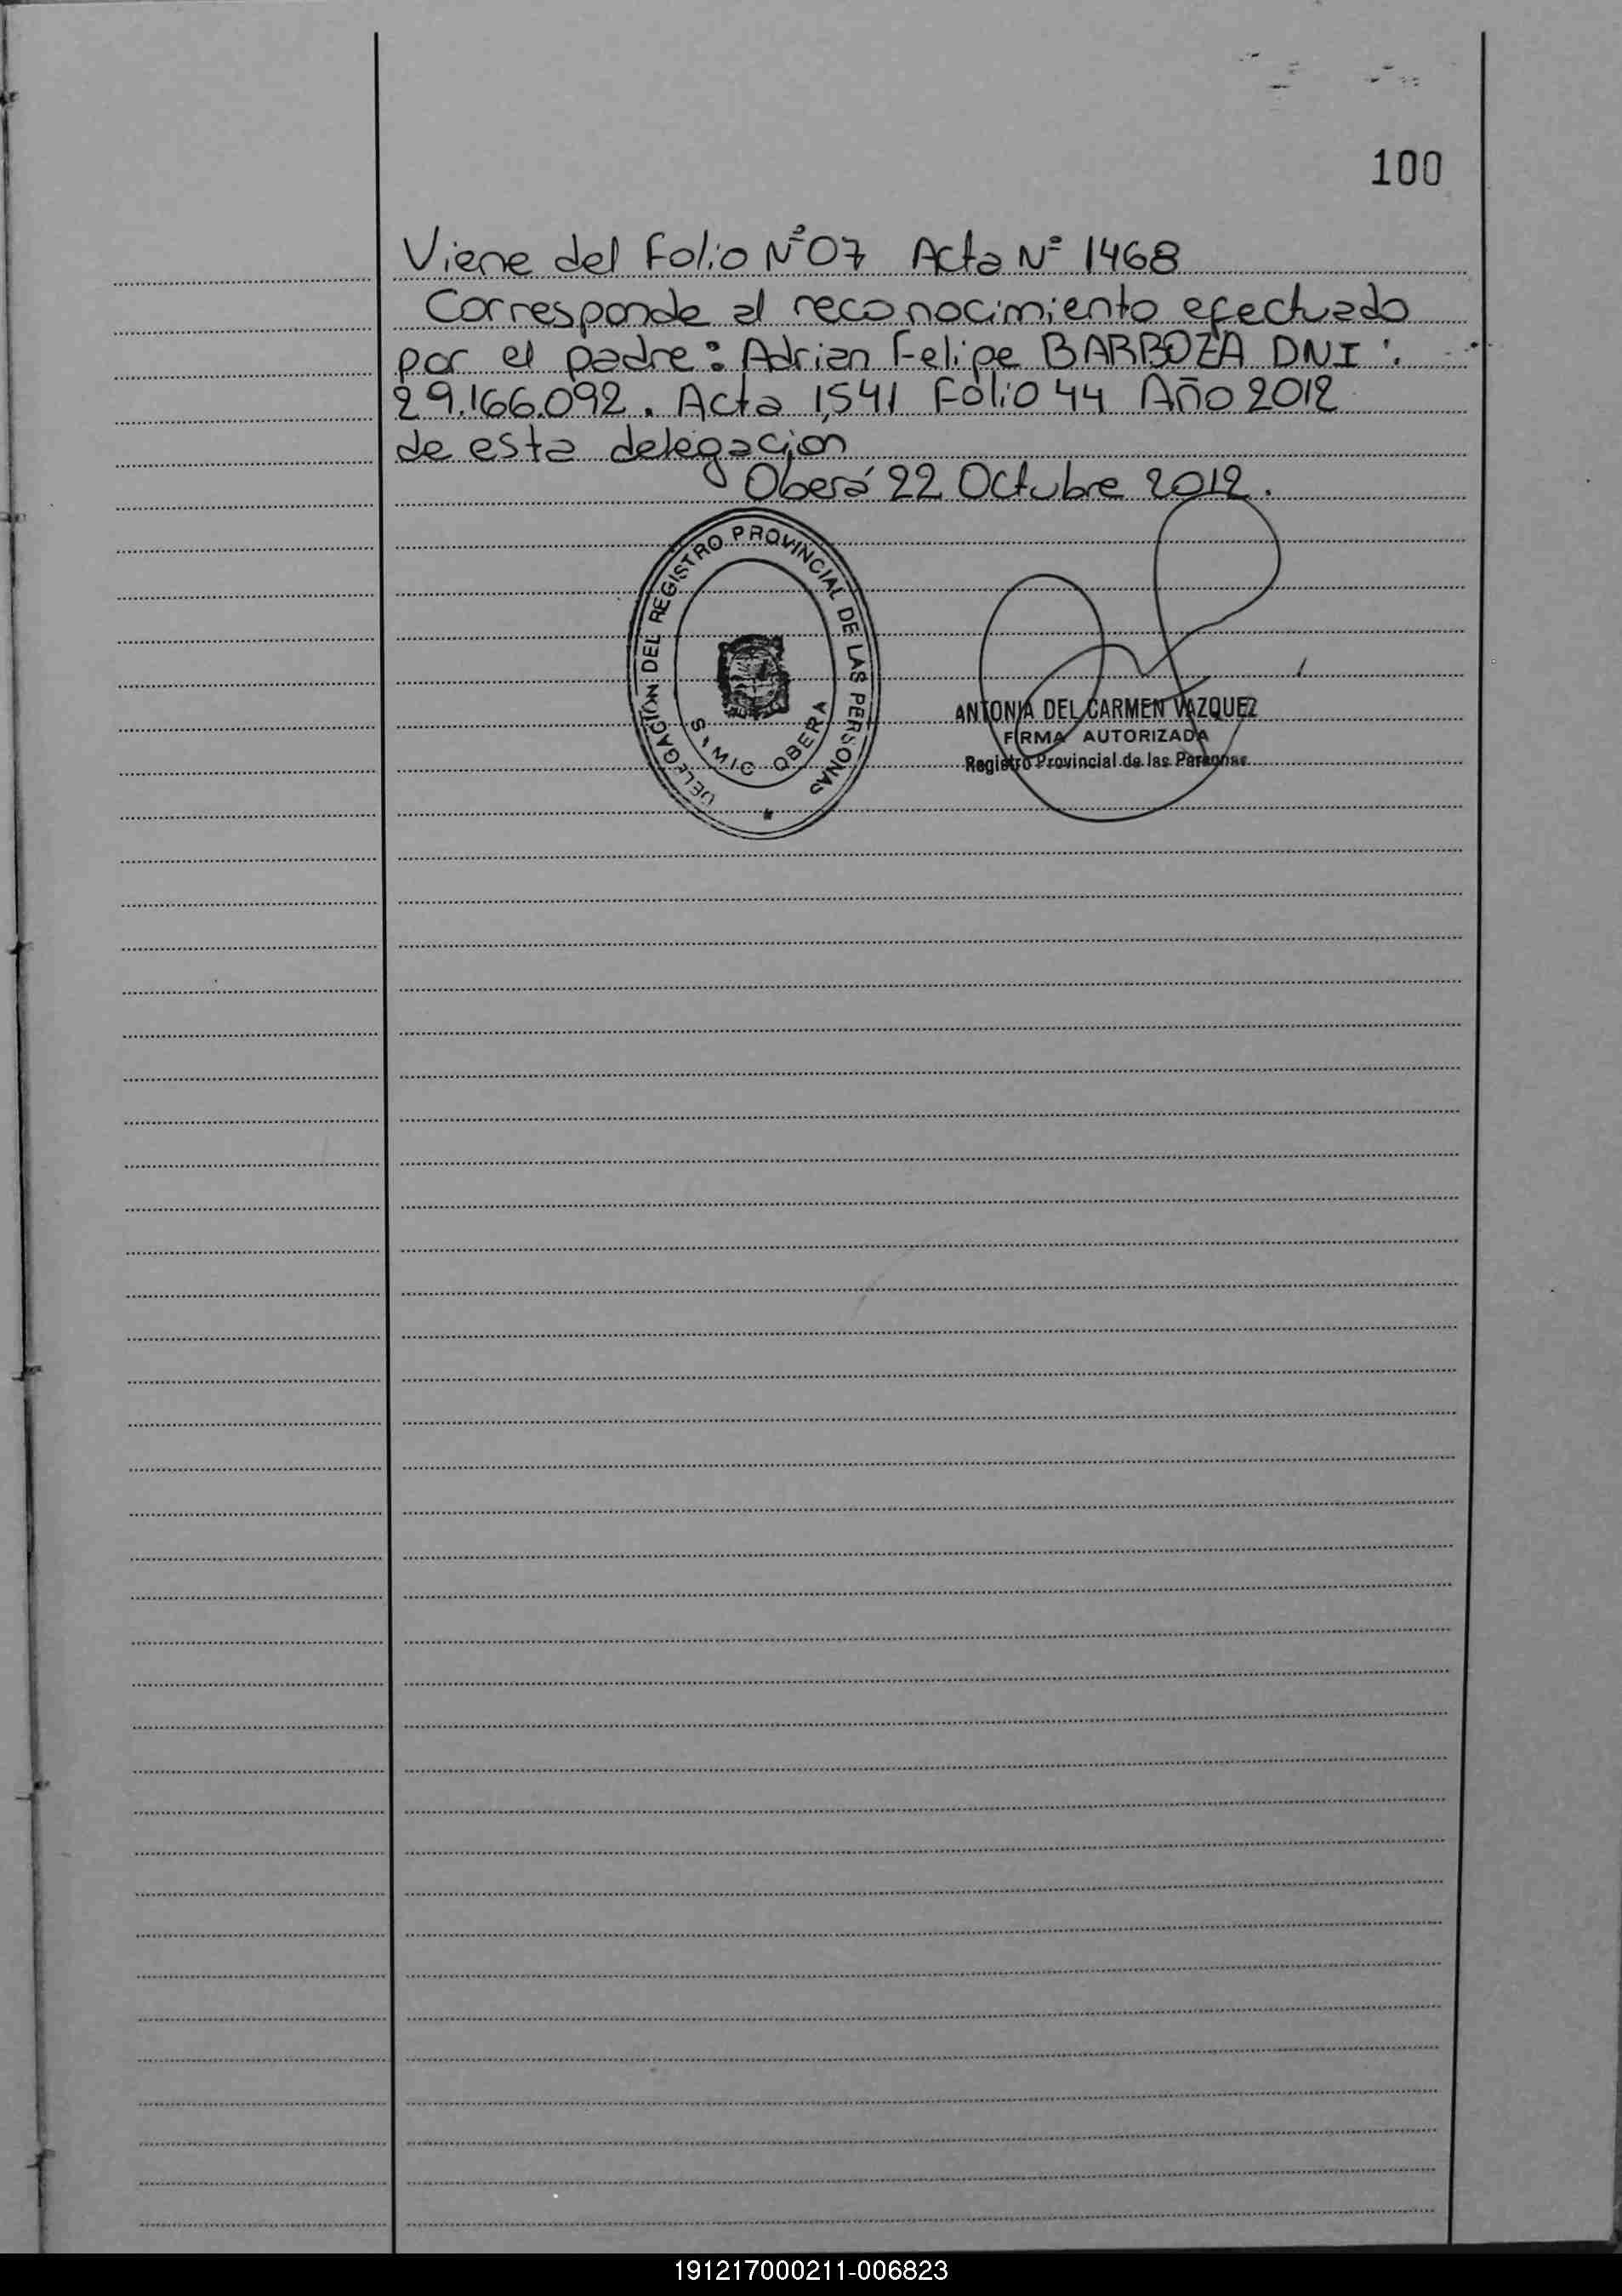 100
Viene del Folio Nº07 Acta Nº 1468
Corresponde al reconocimiento efectuado
por el padre: Adrian Felipe BARBOZA DNI:
29.166.092. Acta 1,541 Folio 44 Año 2012
de esta delegacion
Oberá 22 Octubre 2012.
DELEGACIÓN DEL REGISTRO PROVINCIAL DE LAS PERSONAS
OBERA
ANTONIA DEL CARMEN VAZQUEZ
FIRMA AUTORIZADA
Registro Provincial de las Personas
191217000211-006823